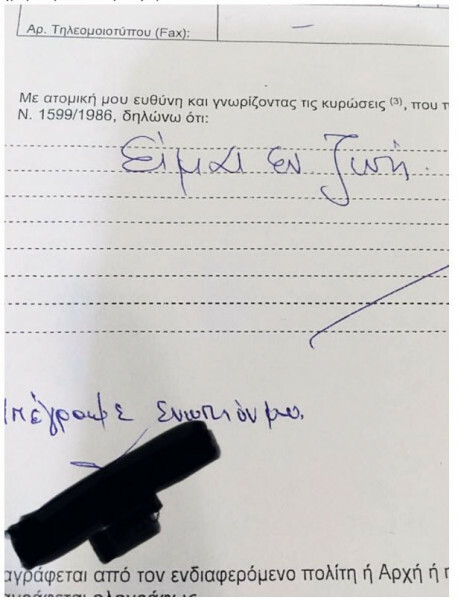 Αρ. Τηλεομοιοτύπου (Fax):
Με ατομική μου ευθύνη και γνωρίζοντας τις κυρώσεις (3), που
Ν. 1599/1986, δηλώνω ότι:
Είμαι εν ζωή.
ενωπιόν μου.
αγράφεται από τον ενδιαφερόμενο πολίτη ή Αρχή ή